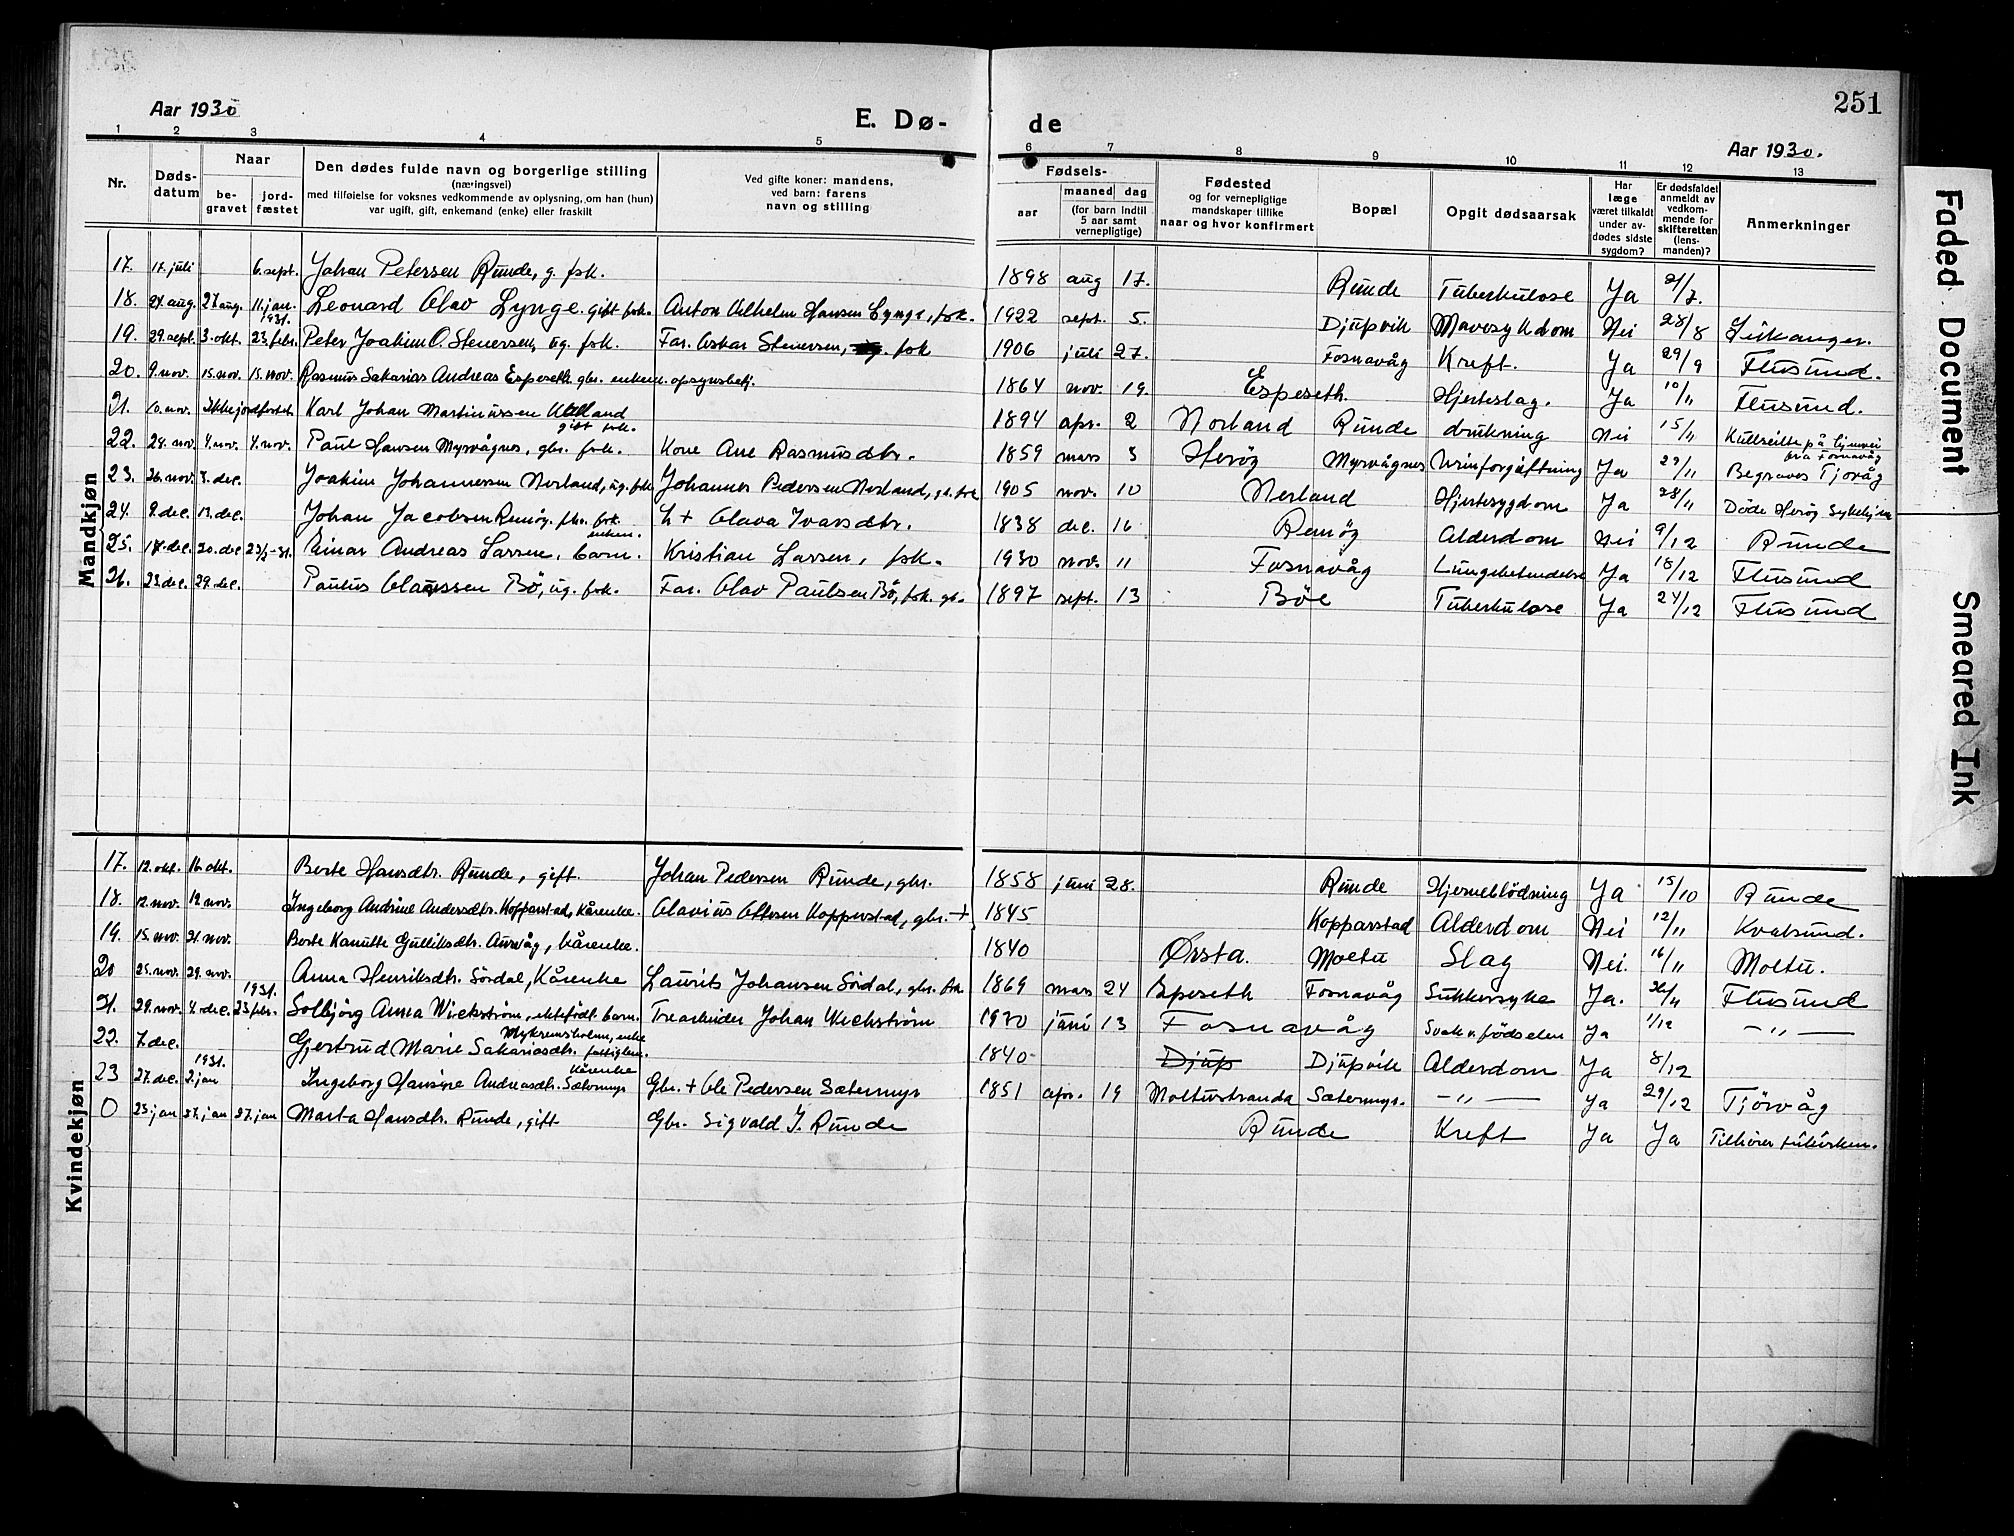 251
Aar 1930
E. Dø-
de
Aar 1930.
1 2 3 4 5 6 7 8 9 10 11 12 13
Nr.
Døds-
datum
Naar
be-
gravet
jord-
fæstet
Den dødes fulde navn og borgerlige stilling
(næringsvei)
med tilføielse for voksnes vedkommende av oplysning, om han (hun)
var ugift, gift, enkemand (enke) eller fraskilt
Ved gifte koner: mandens,
ved barn: farens
navn og stilling
Fødsels-
aar
maaned
dag
(for barn indtil
5 aar samt
vernepligtige)
Fødested
og for vernepligtige
mandskaper tillike
naar og hvor konfirmert
Bopæl
Opgit dødsaarsak
Har
læge
været tilkaldt
under av-
dødes sidste
sygdom?
Er dødsfaldet
anmeldt av
vedkom-
mende for
skifteretten
(lens-
manden)?
Anmerkninger
Mandkjøn
17. 17. juli 6. sept. Johan Petersen Runde, g. fsk. 1898 aug 17. Runde Tuberkulose Ja 21/7.
18. 24. aug. 27 aug. 11. jan. 1931. Leonard Olav Lynge. gift fsk. Anton Vilhelm Hansen Lynge, fsk. 1922 sept. 5. Djupvik Mavesykdom Nei 28/8 Leikanger.
19. 29. sept. 3. okt. 23. febr. Peter Joakim O. Stenersen, ug. fsk. Far. Oskar Stenersen, fsk 1906 juli 27. Fosnavåg Kreft. Ja 29/9 Flusund.
20. 9. nov. 15. nov. 15. nov. Rasmus Sakarias Andreas Espeseth gbr. enkem. opsynsbetj. 1864 nov. 19. Espeseth. Hjerteslag. Ja 10/11 Flusund.
21. 10. nov. Ikke jordfestet. Karl Johan Martinussen
gift fsk. 1894 apr. 2 Norland Runde drukning Nei 15/11 Kullseilte på hjemvei
fra Fosnavåg
22. 28. nov. 4. nov. 4. nov. Paul Hansen Myrvågnes, gbr. fsk. Kone Ane Rasmusdtr. 1859 mars 3 Herøy Myrvågnes Urinforgiftning Ja 29/11 Begraves Tjovåg
23. 26. nov. 3. dec. Joakim Johannessen Nerland, ug. fsk. Johannes Pedersen Nerland, g. fsk 1905 nov. 10 Nerland Hjertesygdom Ja 28/11 Døde Herøy Sykehjem
24. 9. dec. 13. dec. Johan Jacobsen Remøy. fhv. fsk.
enkem. h + Olava Ivarsdtr. 1838 dec. 16 Remöy Alderdom Nei 9/12 Runde
25. 18. dec. 20. dec 23/2-31. Einar Andreas Larsen, barn. Kristian Larsen, fsk. 1930 nov. 11 Fosnavåg Lungebetendelse Ja 18/12 Flusund
26. 23. dec. 29. dec. Paulus Olaussen Bö, ug. fsk. Far. Olav Paulsen Bö, fsk. gbr. 1897 sept. 13 Böe Tuberkulose Ja 24/12 Flusund
Kvindekjøn
17. 12. okt. 16. okt. Berte Hansdtr. Runde, gift. Johan Pedersen Runde, gbr. 1858 juni 28. Runde Hjerneblödning Ja 15/10 Runde
18. 12. nov. 19 nov. Ingeborg Andrine Andersdtr. Kopparstad, kårenke. Olavius Ottesen Kopperstad, gbr. + 1845 Kopparstad Alderdom Nei 12/11 Kvalsund.
19. 15. nov. 21. nov. Berte Kanutte Gulliksdtr. Aurvåg, kårenke. 1840 Ørsta. Moltu Slag Nei. 16/11 Moltu.
20 25. nov. 29. nov. Anna Henriksdtr. Sördal, Kårenke Laurits Johansen Sördal, gbr. fsk 1869 mars 24 Espeseth Fosnavåg Sukkersyke Ja. 26/11 Flusund
21. 29. nov. 4. dec. 1931. 23 febr. Solbjörg Anna Wickström, ektefödt barn. Trearbeider Johan Wickström 1930 juni 13 Fosnavåg Svak v. födselen Ja 1/12 – „ –
22. 7. dec. Gjertrud Marie Sakariasdtr. Myksensholm, enke
fattiglem. 1840 Djup Djupvik Alderdom Ja 8/12
23 27. dec. 1931. 2. jan Ingeborg Hansine Andreasdtr. Sætermyr kårenke Gbr. + Ole Pedersen Sætermyr 1851 apr. 19 Molturstranda Sætermyr. – „ – Ja 29/12 Tjörvåg
0 23. jan 27. jan 27. jan Marta Hansdtr. Runde, gift Gbr. Sigvald J. Runde Runde Kreft Ja Ja Tilhörer
Faded Document
Smeared Ink